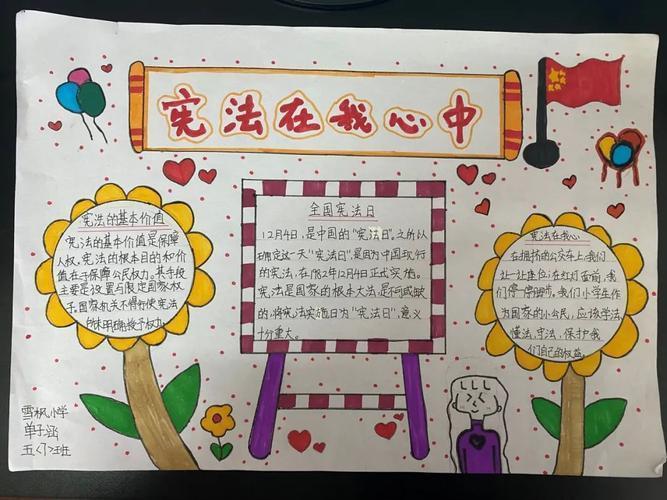 宪法在我心中
宪法的基本价值
宪法的基本价值是保障
人权,宪法的根本目的和价
值在于保障公民权力。其手段
主要是设置与限定国家权
力,国家机关不得行使宪法
所未明确授予权力。
全国宪法日
12月4日,是中国的“宪法日”。之所以
确定这一天“宪法日”,是因为中国现行
的宪法,在1982年12月4日正式实施。
宪法是国家的根本大法,是不可或缺
的,将宪法实施日为“宪法日”,意义
十分重大。
宪法在我心
在拥挤的公交车上,我们
让一让座位;在红灯面前,我
们停一停脚步。我们小学生作
为国家的小公民,应该学法,
懂法,守法,保护我
们自己的权益。
雪枫小学
单子涵
五〈7〉班